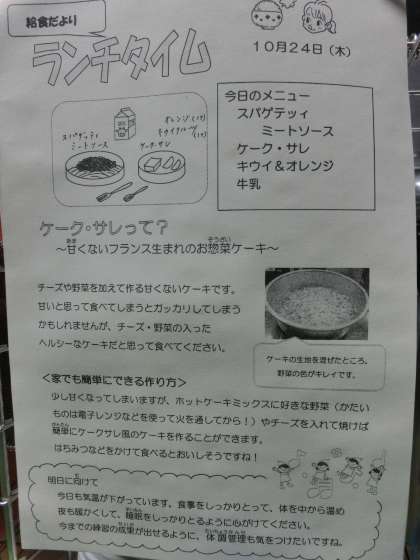 給食だより
ランチタイム
10月24日（木）
今日のメニュー
スパゲティ
ミートソース
ケーク・サレ
キウイ＆オレンジ
牛乳
スパゲッティ
ミートソース
ケーク・サレ
ケーク・サレって？
～甘くないフランス生まれのお惣菜ケーキ～
チーズや野菜を加えて作る甘くないケーキです。
甘いと思って食べてしまうとガッカリしてしまう
かもしれませんが、チーズ・野菜の入った
ヘルシーなケーキだと思って食べてください。
ケーキの生地を混ぜたところ。
野菜の色がキレイです。
＜家でも簡単にできる作り方＞
少し甘くなってしまいますが、ホットケーキミックスに好きな野菜（かたい
ものは電子レンジなどを使って火を通してから！）やチーズを入れて焼けば
簡単にケークサレ風のケーキを作ることができます。
はちみつなどをかけて食べるとおいしそうですね！
明日に向けて
今日も気温が下がっています。食事をしっかりとって、体を中から温め
夜も暖かくして、睡眠をしっかりとるように心がけてください。
今までの練習の成果が出せるように、体調管理も気をつけたいですね。